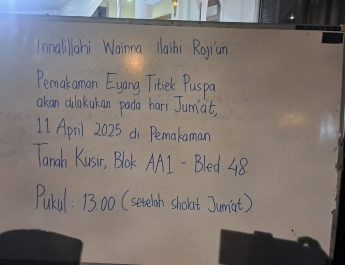 Innalillahi Wainna Ilaihi Roji'un
Pemakaman Eyang Titiek Puspa
akan dilakukan pada hari Jum'at,
11 April 2025 di Pemakaman
Tanah Kusir, Blok AA1 - Bled 48.
Pukul : 13.00 (setelah sholat Jum'at)